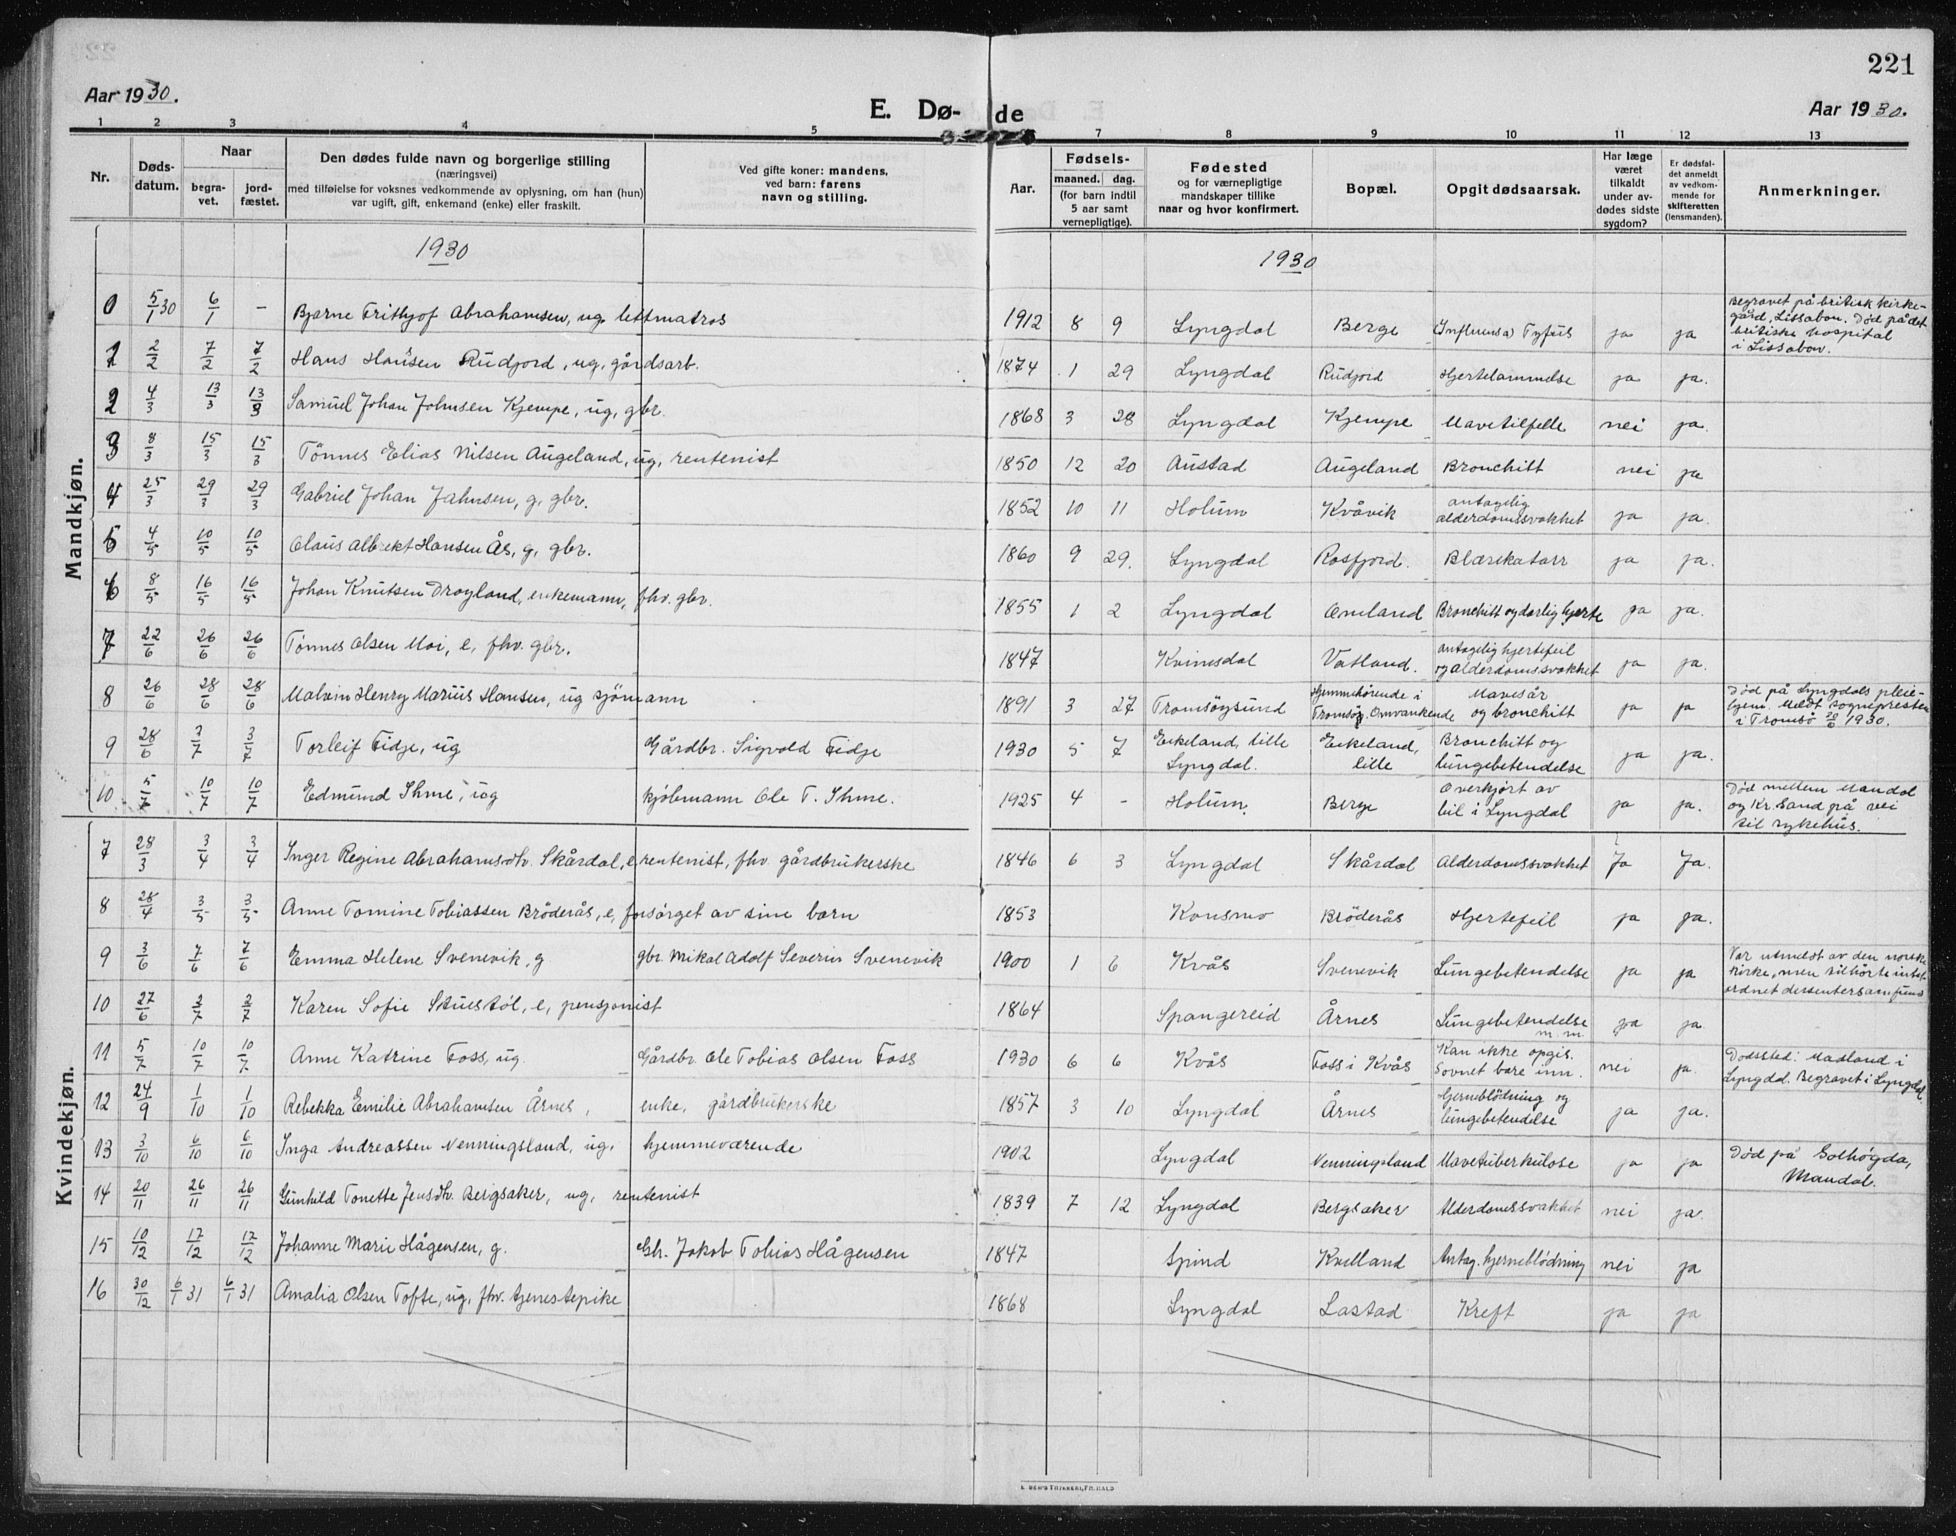 221
Aar 1930.
E. Dø- de
Aar 1930.
1 2 3 4 5 7 8 9 10 11 12 13
Nr.
Døds-
datum.
Naar
begra-
vet.
jord-
fæstet.
Den dødes fulde navn og borgerlige stilling
(næringsvei)
med tilføielse for voksnes vedkommende av oplysning, om han (hun)
var ugift, gift, enkemand (enke) eller fraskilt.
Ved gifte koner: mandens,
ved barn: farens
navn og stilling.
Aar.
Fødsels-
maaned. dag.
(for barn indtil
5 aar samt
vernepligtige).
Fødested
og for værnepligtige
mandskaper tillike
naar og hvor konfirmert.
Bopæl.
Opgit dødsaarsak.
Har læge
været
tilkaldt
under av-
dødes sidste
sygdom?
Er dødsfal-
det anmeldt
av vedkom-
mende for
skifteretten
(lensmanden).
Anmerkninger.
1930 1930
Mandkjøn.
0 5/1 30 6/1 - Bjarne Frithjof Abrahamsen, ug. lettmatros 1912 8 9 Lyngdal Berge (Influensa) Tyfus ja ja
Begravet på britisk kirke-
gård, Lissabon. Død på det
britiske hospital
i Lissabon.
1 2/2 7/2 7/2 Hans Hansen Rudjord, ug, gårdsarb. 1874 1 29 Lyngdal Rudjord Hjertelammelse ja ja.
2 4/3 13/3 13/3 Samuel Johan Johnsen Kjempe, ug, gbr. 1868 3 28 Lyngdal Kjempe Mavetilfelle nei ja.
3 8/3 15/3 15/3 Tönnes Elias Nilsen Augeland, ug, rentenist 1850 12 20 Austad Augeland Bronchitt nei ja
4 25/3 29/3 29/3 Gabriel Johan Jahnsen, g, gbr. 1852 10 11 Holum Kvåvik antagelig
alderdomssvakhet ja ja.
5 4/5 10/5 10/5 Claus Albrekt Hansen Ås, g, gbr. 1860 9 29. Lyngdal Rosfjord. Blærekatarr ja ja.
6 8/5 16/5 16/5 Johan Knutsen Drøyland, enkemann, fhv. gbr. 1855 1 2 Lyngdal Omland Bronchitt og darlig hjerte ja ja.
7 22/6 26/6 26/6 Tønnes Olsen Moi, e, fhv. gbr. 1847 Kvinesdal Vatland. antagelig hjertefeil
og alderdomssvakhet ja ja.
8 26/6 28/6 28/6 Malvin Henry Marius Hansen, ug sjömann 1891 3 27 Tromsöysund Hjemmehörende i
Tromsö. Omvankende Mavesår
og bronchitt ja ja
Död på Lyngdals pleie-
hjem. Meldt sognepresten
i Tromsö 1930.
9 28/6 3/7 3/7 Torleif Fidje, ug Gårdbr. Sigvald Fidje 1930 5 7 Eikeland, lille
Lyngdal. Eikeland,
lille Bronchitt og
lungebetendelse ja ja.
10 5/7 10/7 10/7 Edmund Ihme, ug kjöbmann Ole T. Ihme. 1925 4 - Holum. Berge Overkjört av
bil i Lyngdal ja ja.
Död mellem Mandal
og Kr.sand på vei
til sykehus.
Kvindekjøn.
7 28/3 3/4 3/4 Inger Regine Abrahamsdtr. Skårdal, e rentenist, fhv. gårdbrukerske 1846 6 3 Lyngdal Skårdal Alderdomssvakhet Ja Ja.
8 28/4 3/5 3/5 Anne Tomine Tobiassen Bröderås, e, forsörget av sine barn 1853 Konsmo Bröderås Hjertefeil ja ja.
9 3/6 7/6 7/6 Emma Helene Svenevik, g gbr. Mikal Adolf Severin Svenevik 1900 1 6 Kvås Svenevik Lungebetendelse ja ja
Var utmeldt av den norske
kirke, men tilhörte intet
ordnet dissentersamfund
10 27/6 2/7 2/7 Karen Sofie Stuestöl, e, pensjonist 1864 Spangereid Årnes Lungebetendelse
m.m. ja ja.
11 5/7 10/7 10/7 Anne Katrine Foss, ug. Gårdbr. Ole Tobias Olsen Foss 1930 6 6 Kvås Foss i Kvås Kan ikke opgis.
Sovnet bare inn. nei ja.
Dödssted: Madland i
Lyngdal. Begravet i Lyngdal.
12 24/9 1/10 1/10 Rebekka Emilie Abrahamsen Årnes, enke, gårdbrukerske 1857 3 10 Lyngdal Årnes Hjerneblödning og
lungebetendelse ja ja.
13 3/10 6/10 6/10 Inga Andreassen Venningsland, ug. hjemmeværende 1902 Lyngdal Venningsland Mavetuberkulose ja ja
Död på Solhögda,
Mandal.
14 20/11 26/11 26/11 Gunhild Tonette Jensdtr. Bergsaker, ug, rentenist 1839 7 12 Lyngdal Bergsaker Alderdomssvakhet nei ja.
15 10/12 17/12 17/12 Johanne Marie Hågensen, g. Gbr. Jakob Tobias Hågensen 1847 Spind Kvelland Antag. hjerneblödning nei ja
16 30/12 6/1 31 6/1 31 Amalia Olsen Tofte, ug, fhv. tjenestepike 1868 Lyngdal Lastad Kreft ja ja